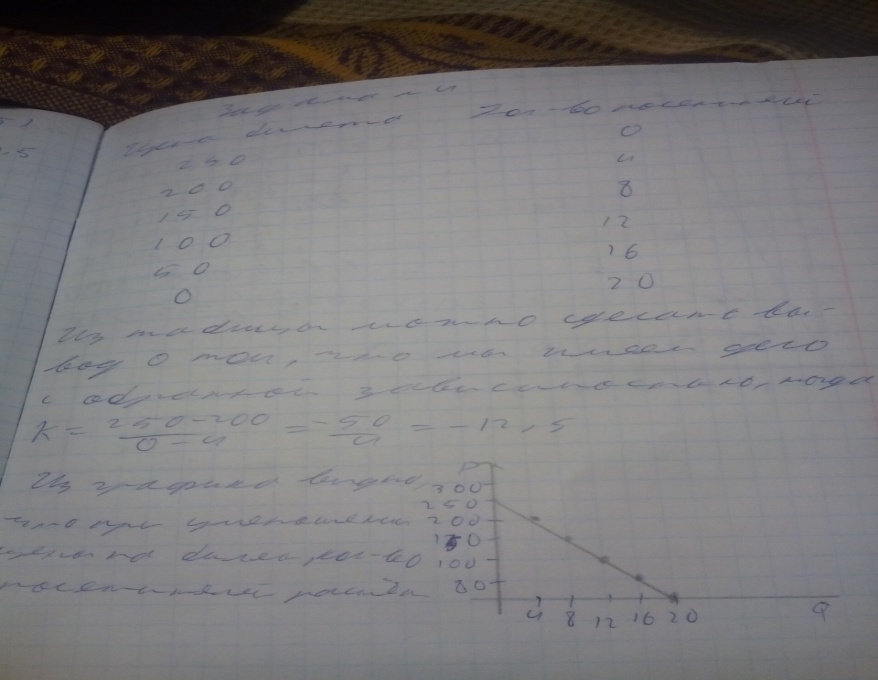 5)
2.5
Задача № 4
Цена билета Кол-во посетителей
250 0
200 4
150 8
100 12
50 16
0 20
Из таблицы можно сделать вы-
вод о том, что мы имеем дело
с обратной зависимостью, когда
K = 250-200 / 0-4 = -50 / 4 = -12,5
Из графика видно,
что при уменьшении
цены на билет, кол-во
посетителей
P
300
250
200
150
100
50
4 8 12 16 20 Q